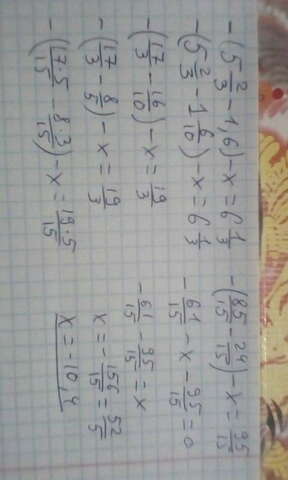 -(5 2/3 - 1,6) - x = 6 1/3
-(5 2/3 - 1 6/10) - x = 6 1/3
-(17/3 - 16/10) - x = 19/3
-(17/3 - 8/5) - x = 19/3
-(17·5/15 - 8·3/15) - x = 19·5/15
-(85/15 - 24/15) - x = 95/15
-61/15 - x - 95/15 = 0
-61/15 - 95/15 = x
x = -156/15 = 52/5
x = -10,4